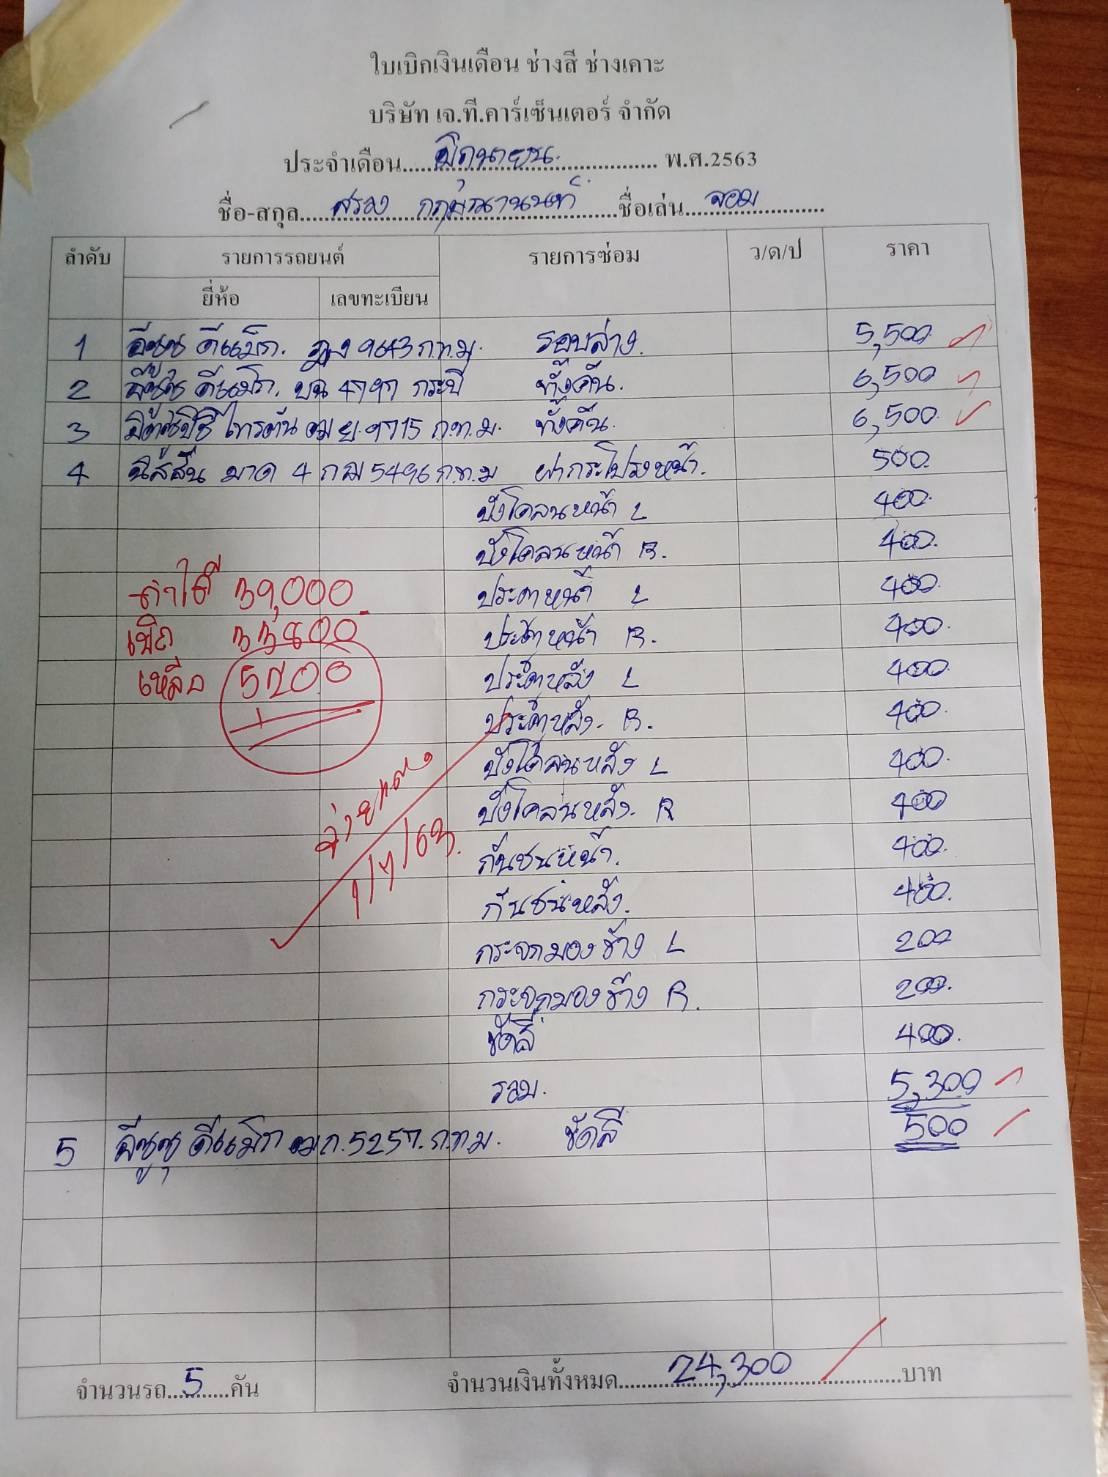 ใบเบิกเงินเดือน ช่างสี ช่างเคาะ
บริษัท เจ.ที.คาร์เซ็นเตอร์ จำกัด
ประจำเดือน....มิถุนายน.............. พ.ศ.2563
ชื่อ-สกุล................ชื่อเล่น..จอม........
ลำดับ รายการรถยนต์ รายการซ่อม ว/ด/ป ราคา
ยี่ห้อ เลขทะเบียน
1 อีซูซุ ดีแม็ก. 9643 ก.ท.ม. รอบล่าง. 5,500
2 อีซูซุ ดีแม็ก. บน 4797 กระบี่ ทั้งคัน. 6,500
3 มิตซูบิชิ ไทรตัน 9715 ก.ท.ม. ทั้งคัน. 6,500.
4 นิสสัน มาด 4 5496 ก.ท.ม ฝากระโปรงหน้า. 500.
บังโคลนหน้า L 400.
บังโคลนหน้า R. 400.
ประตูหน้า L 400.
ประตูหน้า R. 400.
ประตูหลัง L 400.
ประตูหลัง. R. 400.
บังโคลนหลัง L 400.
บังโคลนหลัง. R 400
กันชนหน้า. 400.
กันชนหลัง. 400.
กระจกมองข้าง L 200
กระจกมองข้าง R. 200.
ขัดสี 400.
รวม. 5,300
5 อีซูซุ ดีแม็ก 5257. ก.ท.ม. ขัดสี 500
ทำได้ 39,000
เบิก 33800
เหลือ 5200
จ่ายแล้ว
1/7/63.
จำนวนรถ...5....คัน จำนวนเงินทั้งหมด......24,300..........บาท